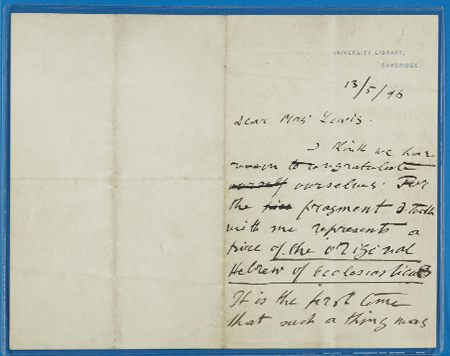 UNIVERSITY LIBRARY,
CAMBRIDGE.
13/5/96
Dear Mrs Lewis.
I think we have
reason to congratulate
ourselves. For
the fragment I took
with me represents a
piece of the original
Hebrew of Ecclesiasticus
It is the first time
that such a thing was